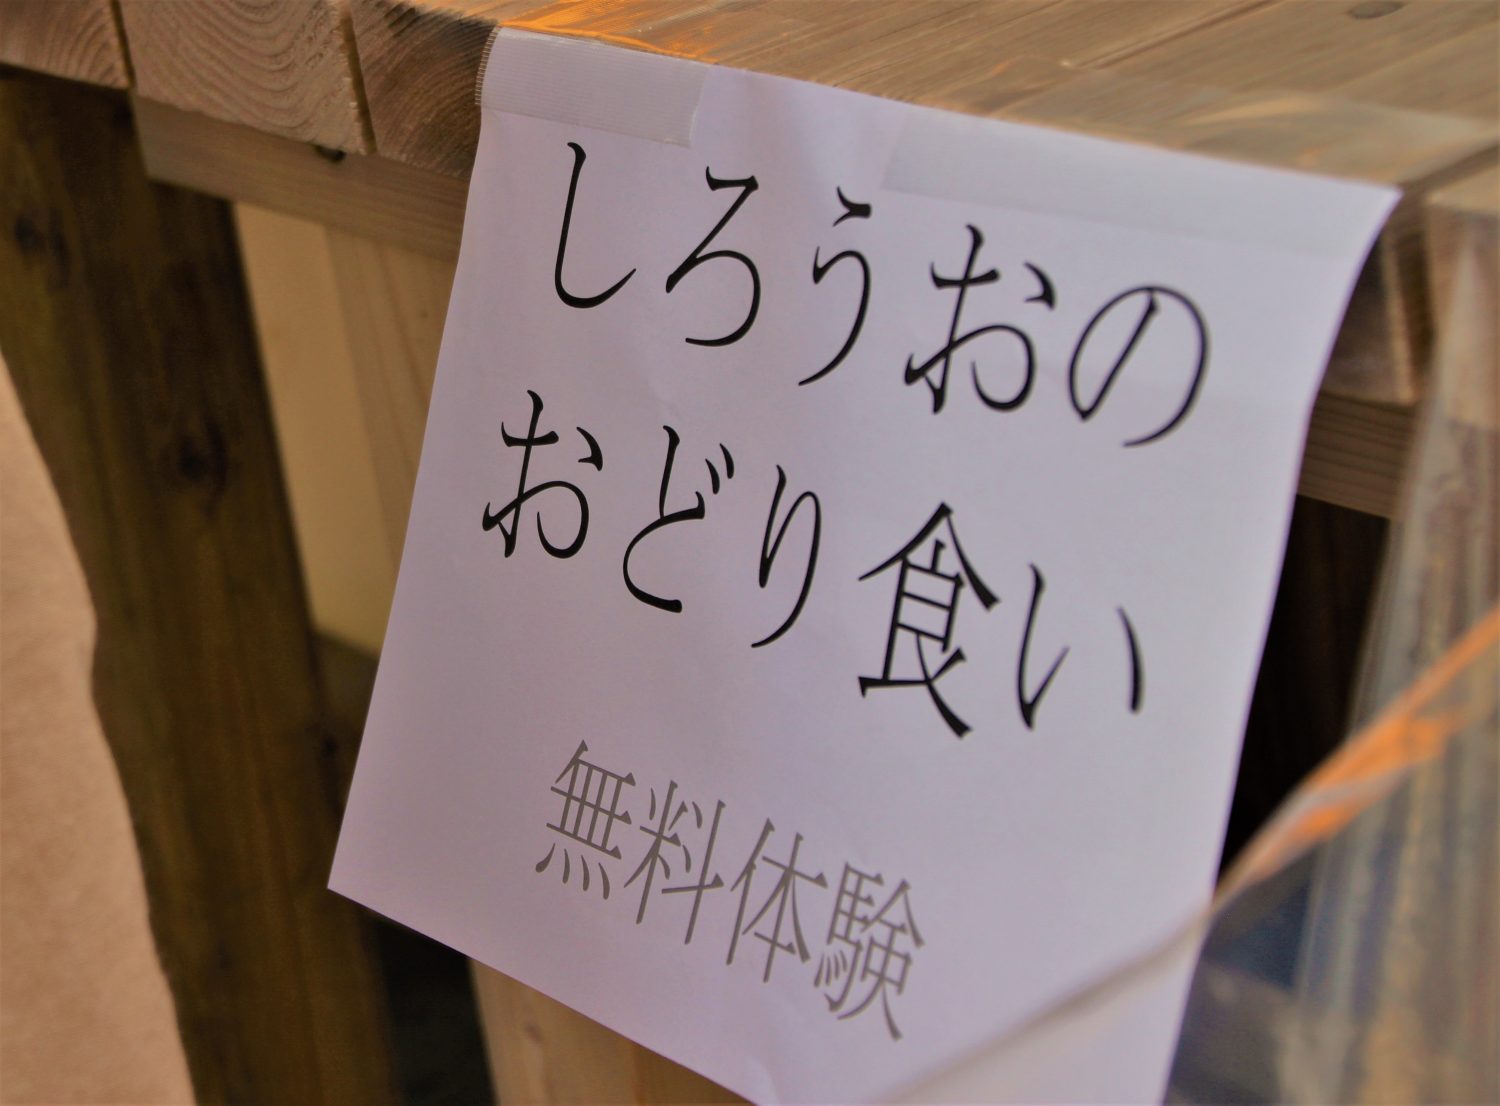 しろうおの
おどり食い
無料体験